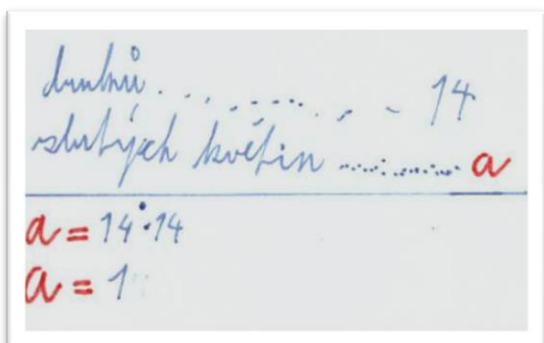 druhů ............ 14
žlutých květin ............ a
a = 14 · 14
a = 1